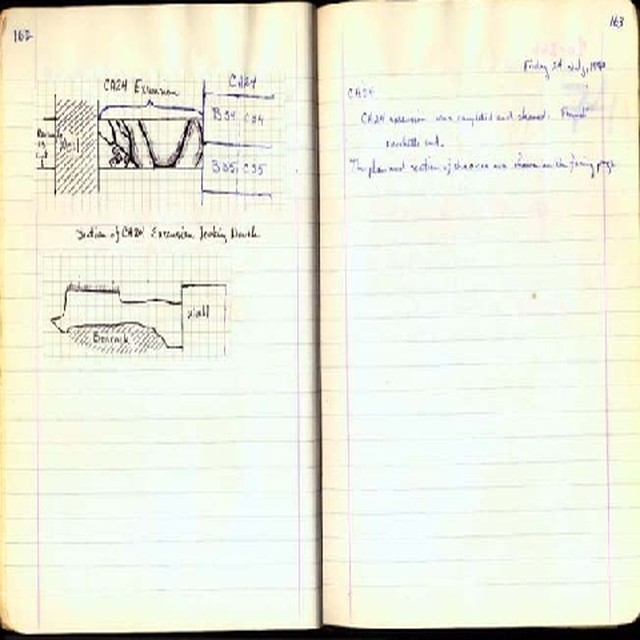 162
CA24 Extension
CA24
B34 C34
Wall
B35 C35
Section of CA24 Extension looking North
Wall
Bedrock
163
Friday 24 July, 1970
CA24
CA24 extension was completed and cleaned.
The plan and section of the area are shown on the facing page